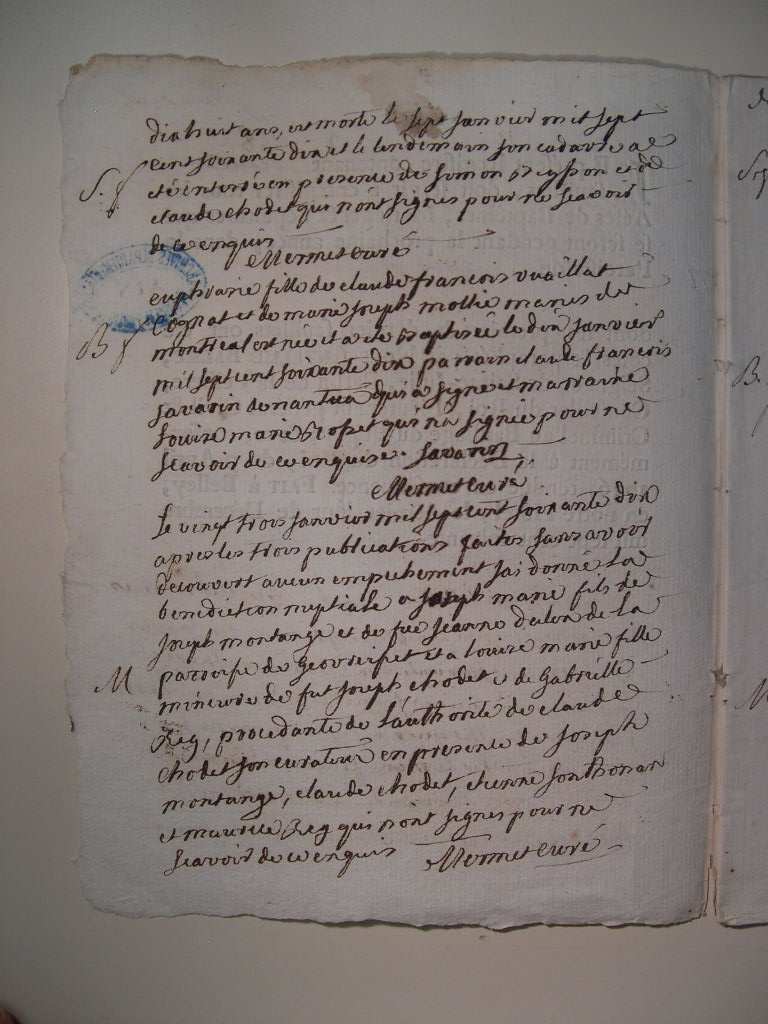 dixhuit ans, est morte le sept janvier mil sept
cent soixante dix et le lendemain son cadavre a
S. été enterré en presence de simon et de
claude chodet qui n'ont signes pour ne scavoir
de ce enquis
Mermet curé
euphrasie fille de claude françois vuaillat
Cognat et de marie joseph mollie maries de
B montreal est née et a eté baptisée le dix janvier
mil sept cent soixante dix parrain claude francois
savarin de nantua qui a signe et marraine
louise marie qui na signée pour ne
scavoir de ce enquise. savarin
Mermet curé
Le vingt trois janvier mil sept cent soixante dix
apres les trois publications faites sans avoir
decouvert aucun empechement jai donné la
benediction nuptiale a joseph marie fils de
joseph montange et de fue jeanne dalon de la
parroisse de geovreisset et a louise marie fille
M mineure de fut joseph chodet e de Gabrielle
Reg, procedante de l'authorité de claude
chodet son curateur en presence de joseph
montange, claude chodet, etienne sonthonax
et maurice Reg qui n'ont signes pour ne
scavoir de ce enquis Mermet curé